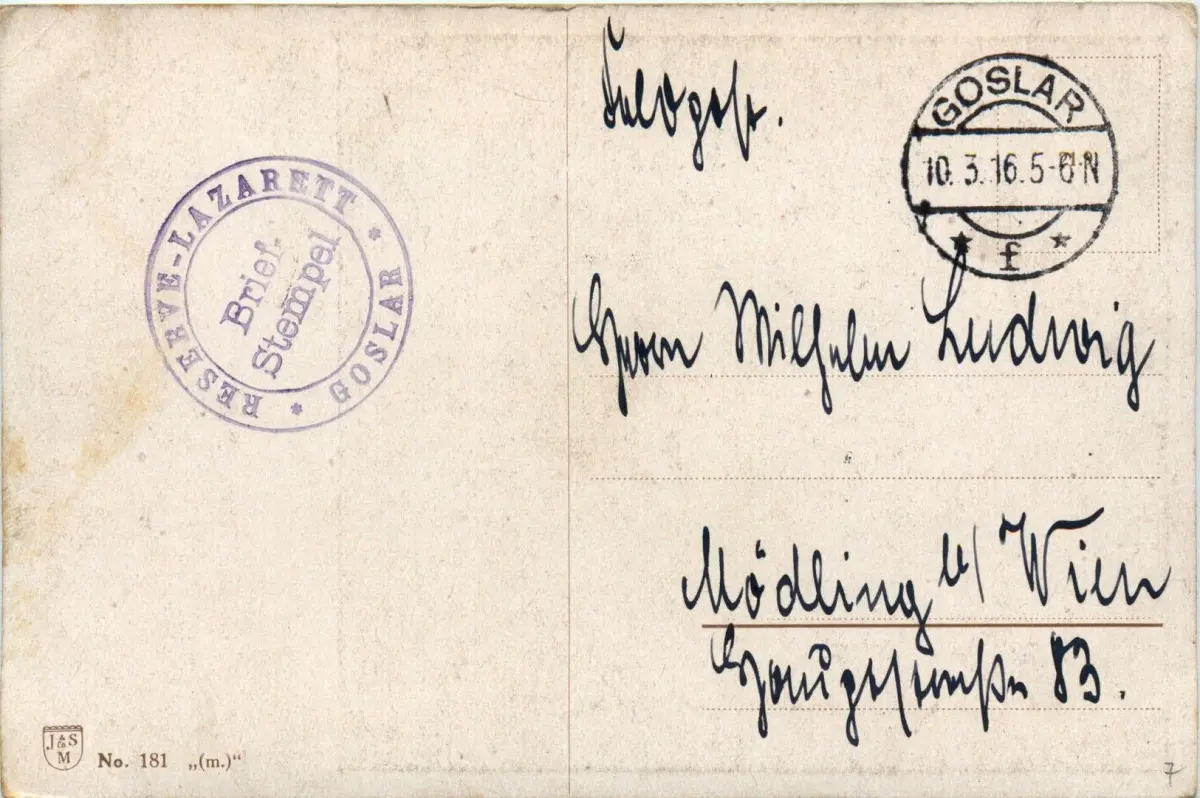 Feldpost.
GOSLAR
10.3.16.5-6N
* f *
RESERVE-LAZARETT * GOSLAR *
Brief-
Stempel
Herrn Wilhelm Ludwig
Mödling b/ Wien
Hauptstraße 83.
J & Co S
M
No. 181 „(m.)“
7